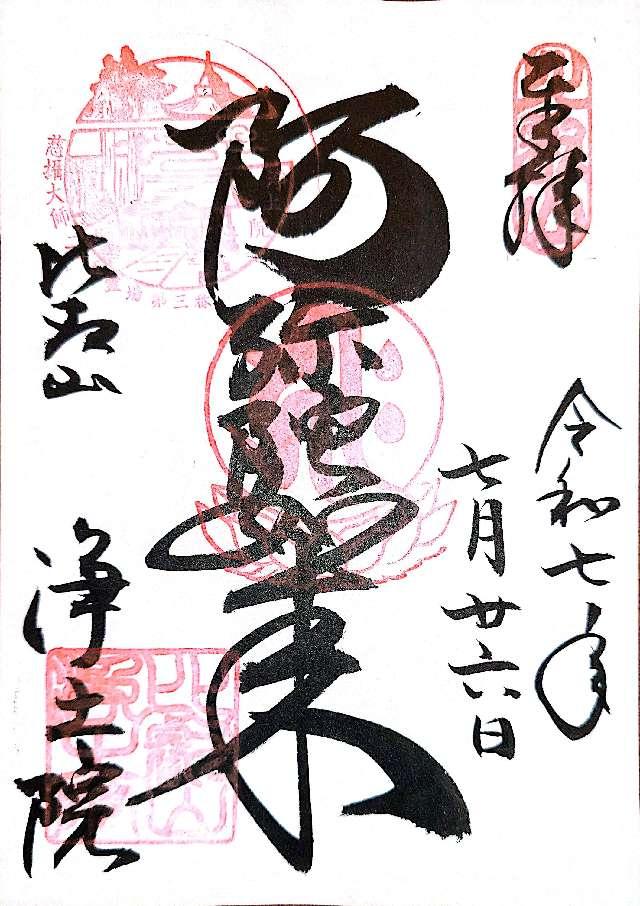 奉拝
令和七年
七月廿六日
阿弥陀如来
慈攝大師
霊場第三番
比叡山
浄土院